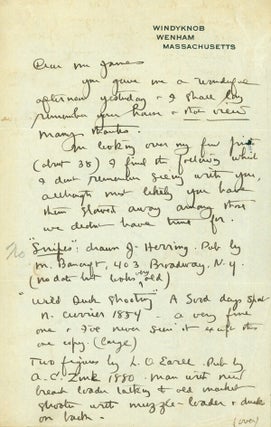 WINDYKNOB
WENHAM
MASSACHUSETTS
Dear Mr James
you gave me a wonderful
afternoon yesterday & I shall long
remember your house & the view
many thanks.
In looking over my few prints
(about 38) I find the following which
I dont remember seeing with you,
although most likely you have
them stowed away among those
we didnt have time for.
No "Snipes" drawn J. Herring. Pub by
M. Bancroft, 403 Broadway, N.Y.
(no date but looks very old)
"Wild Duck Shooting" A Good days Sport
N. Currier 1854 - a very fine
one & I've never seen it except this
one copy (large)
Two figures by L. O. Earle. Pub by
A. C. 1880 - man with new
breech loader talking to old market
shooter with muzzle-loader & ducks
on back -
(over)